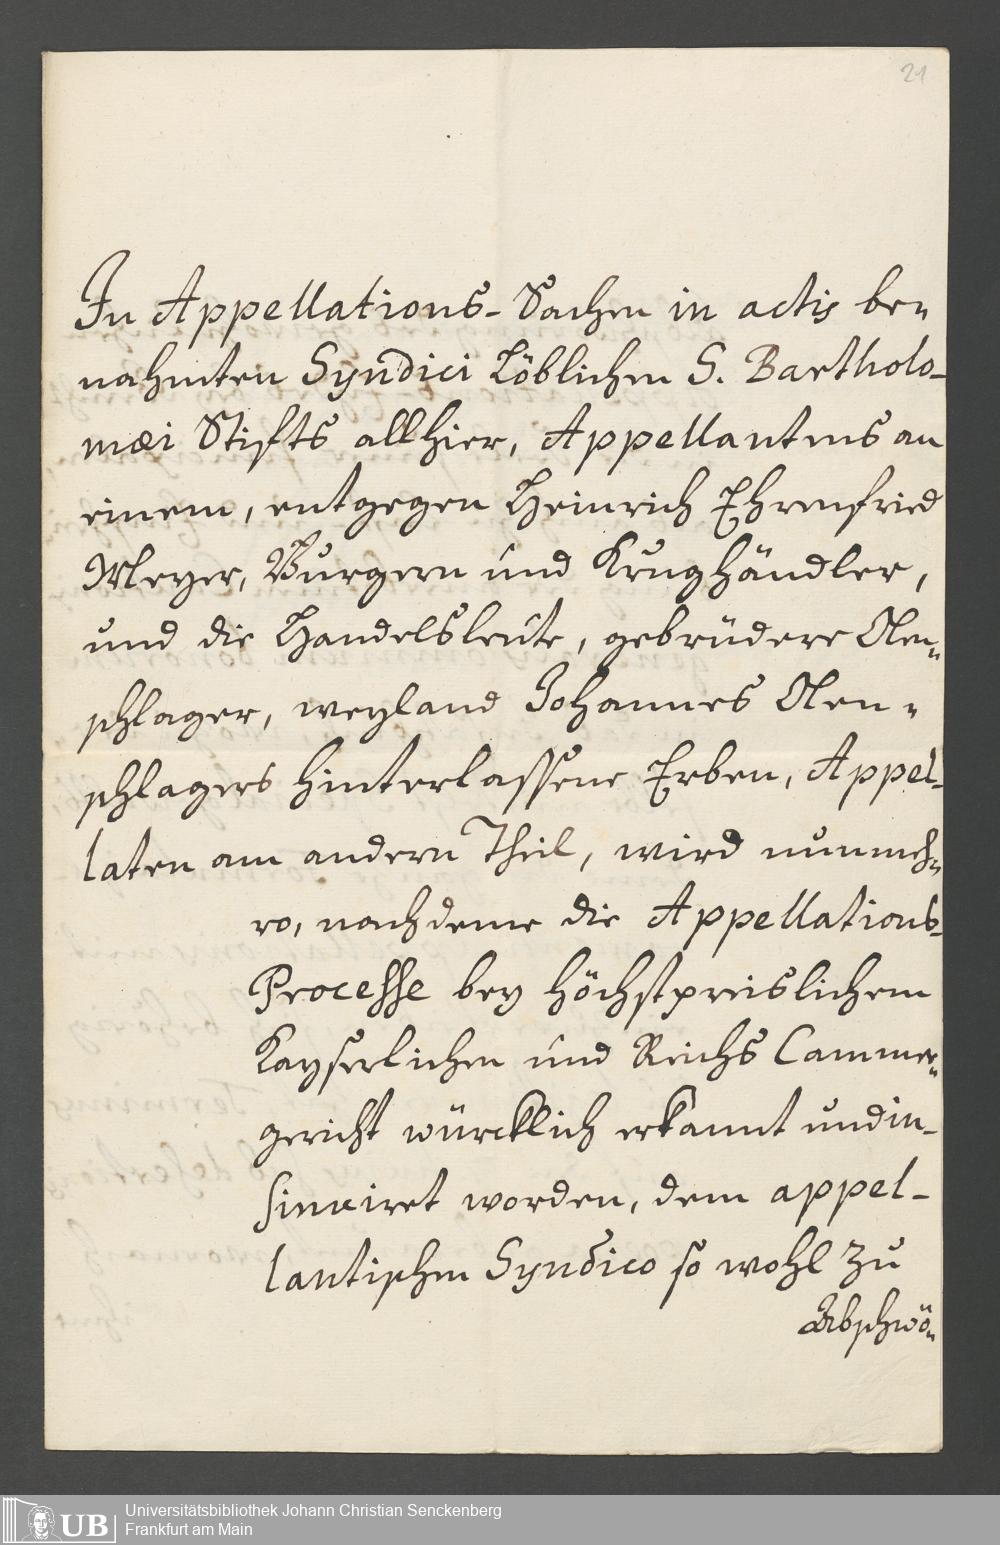 21
In Appellations-Sachen in actis be-
nahmten Syndici Löblichen S. Bartholo-
mæi Stiffts allhier, Appellanten's an
einem, entgegen Heinrich Ehrenfried
Meyer, Burgern und Krughändler,
und die Handelsleute, gebrüdere Olen-
schlager, weyland Johannes Olen-
schlagers hinterlassene Erben, Appel-
laten am andern Theil, wird nunmeh-
ro, nachdeme die Appellations-
Processe bey höchstpreislichem
Kayserlichen und Reichs Cammer-
gericht würcklich erkannt und in-
sinuiret worden, dem appel-
lantischen Syndico so wohl zu
Abschwö-
UB
Universitätsbibliothek Johann Christian Senckenberg
Frankfurt am Main